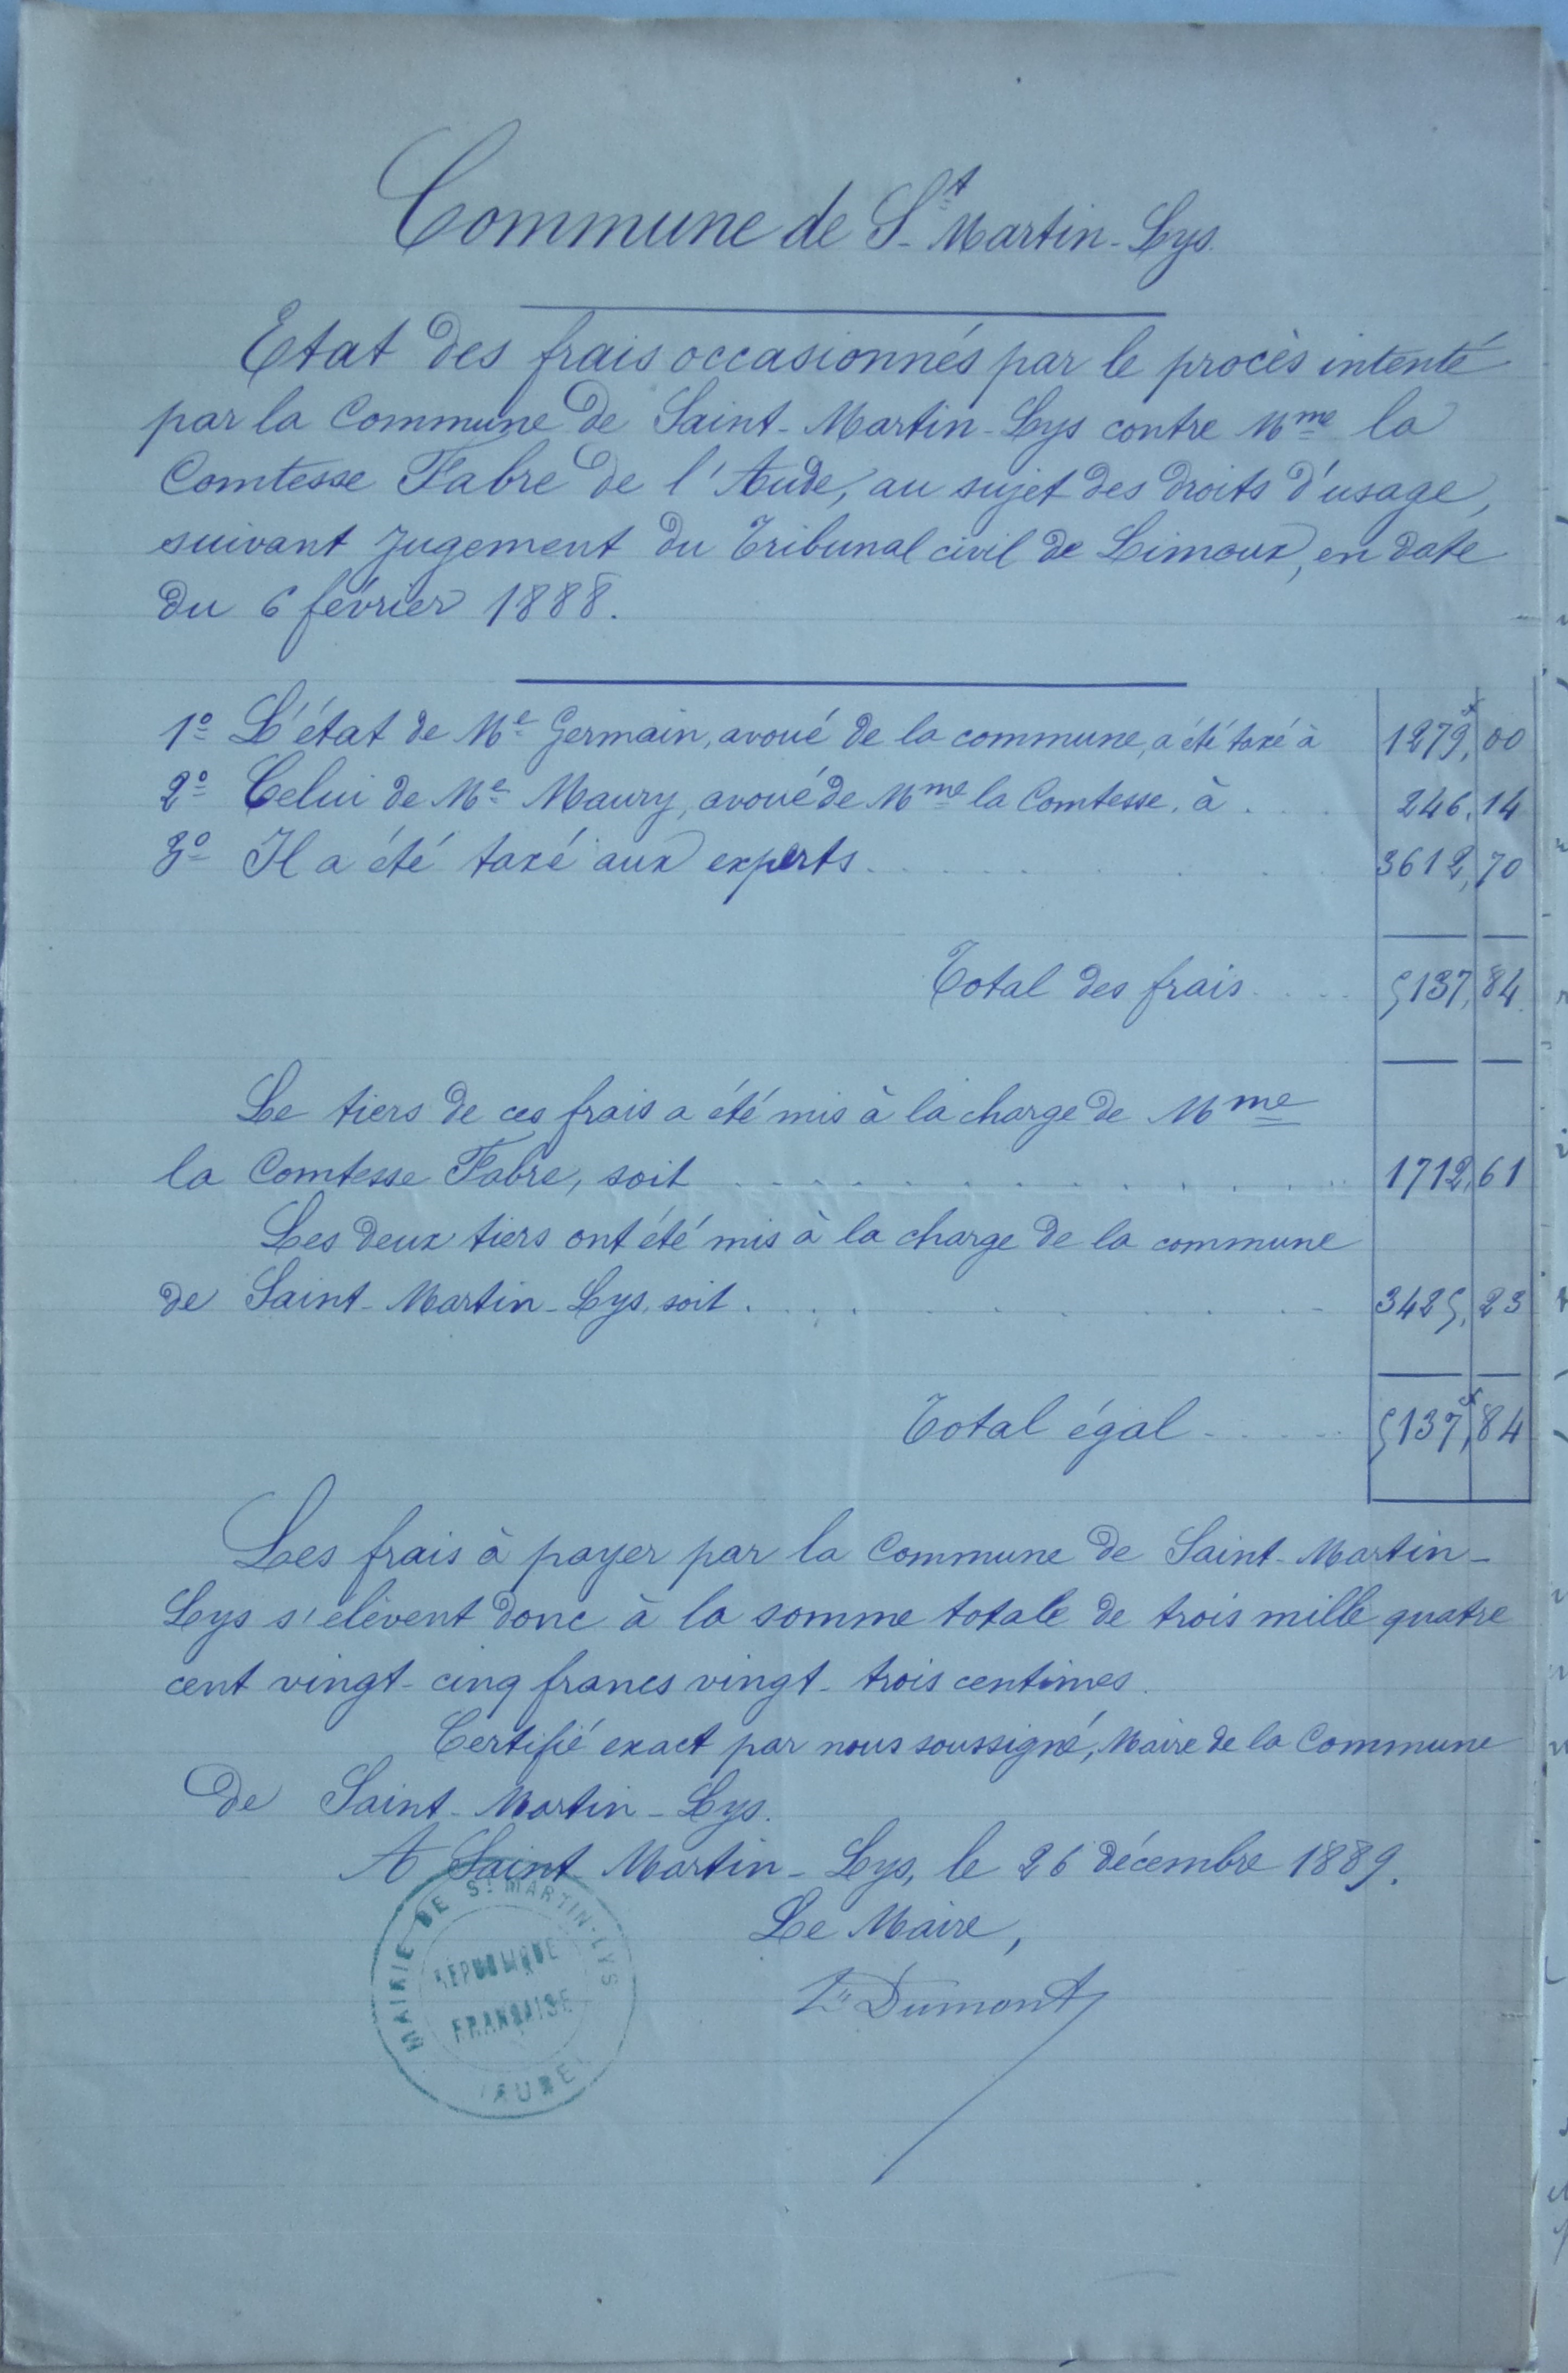 Commune de St Martin-Lys.
Etat des frais occasionnés par le procès intenté
par la Commune de Saint-Martin-Lys contre Mme la
Comtesse Fabre de l'Aude, au sujet des droits d'usage,
suivant Jugement du Tribunal civil de Limoux, en date
du 6 février 1888.
1º L'état de Me Germain, avoué de la commune, a été taxé à 1279f,00
2º Celui de Me Maury, avoué de Mme la Comtesse, à . . . 246,14
3º Il a été taxé aux experts . . . . . . 3612,70
Total des frais . . . . 5137,84
Le tiers de ces frais a été mis à la charge de Mme
la Comtesse Fabre, soit . . . . . . . . . . 1712,61
Les deux tiers ont été mis à la charge de la commune
de Saint-Martin-Lys, soit . . . . . . . . 3425,23
Total égal . . . . 5137f,84
Les frais à payer par la Commune de Saint-Martin-
Lys s'elèvent donc à la somme totale de trois mille quatre
cent vingt-cinq francs vingt-trois centimes.
Certifié exact par nous soussigné, Maire de la Commune
de Saint-Martin-Lys.
A Saint-Martin-Lys, le 26 décembre 1889.
Le Maire,
Dumont
MAIRIE DE St MARTIN-LYS
RÉPUBLIQUE
FRANÇAISE
AUDE